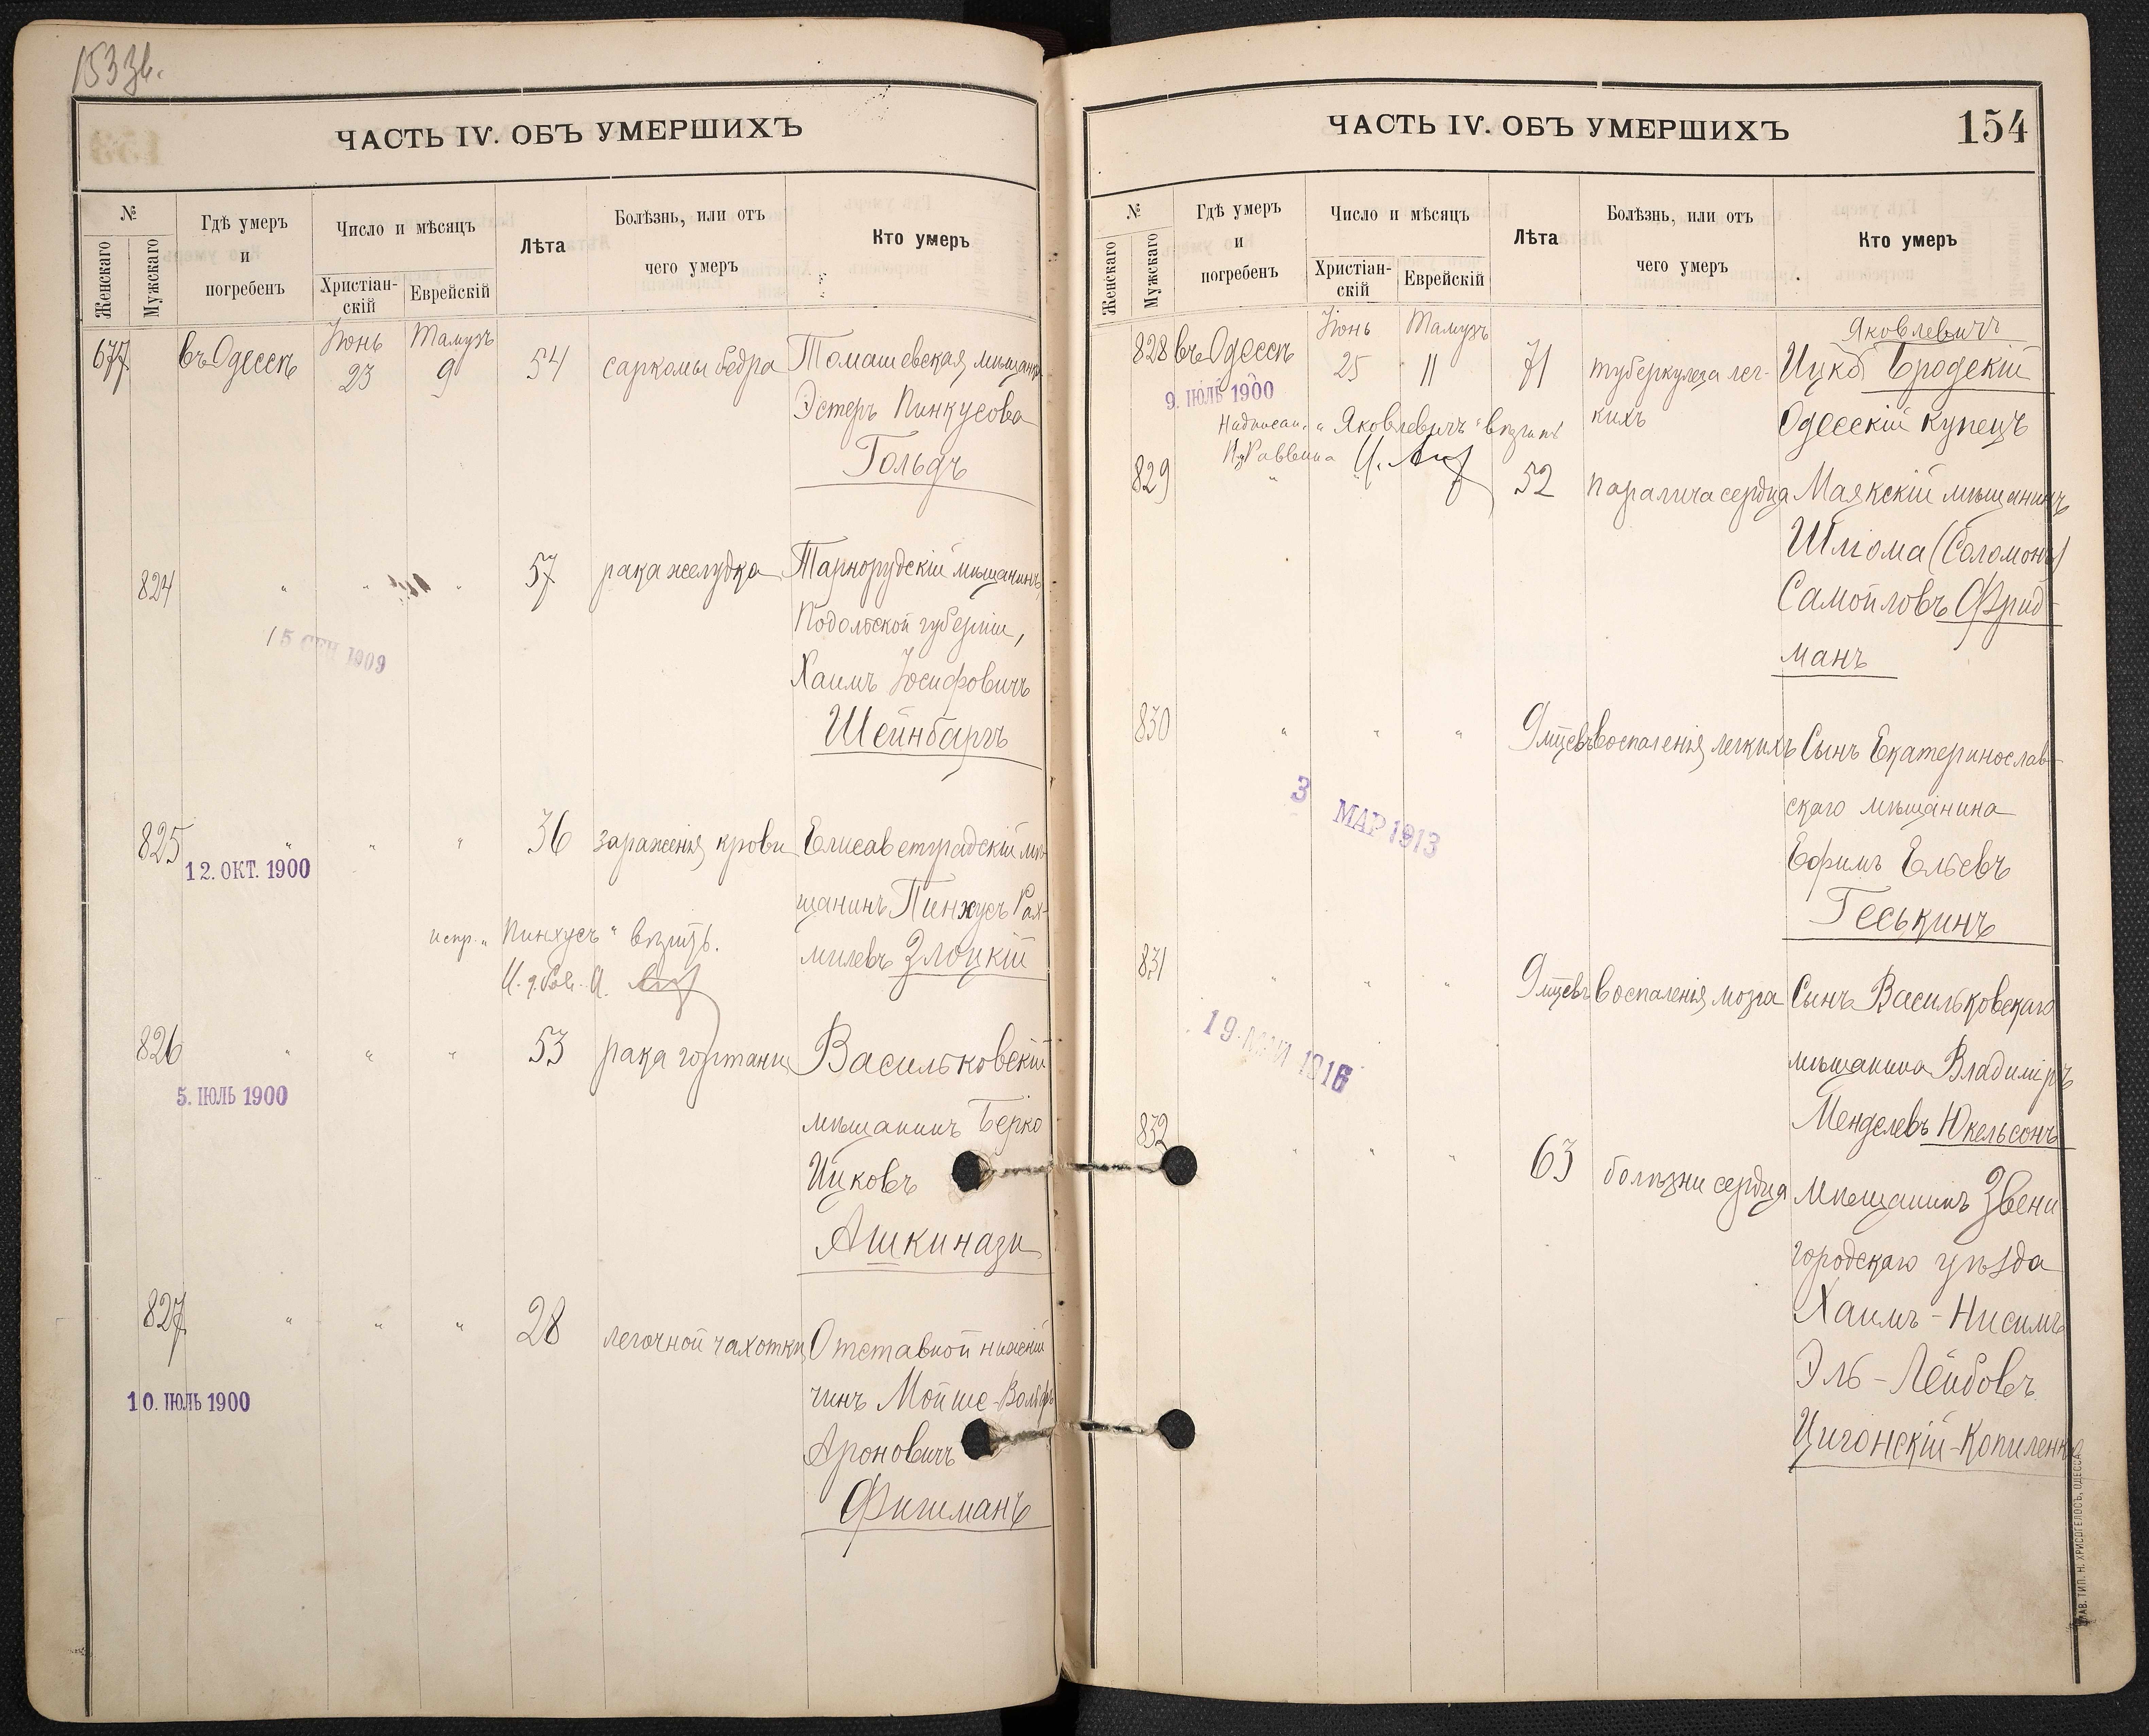 153 зв.
ЧАСТЬ IV. ОБЪ УМЕРШИХЪ
№
Женскаго
Мужскаго
Гдѣ умеръ
и
погребенъ
Число и мѣсяцъ
Христіан-
скій
Еврейскій
Лѣта
Болѣзнь, или отъ
чего умеръ
Кто умеръ
677 въ Одессѣ Іюнь 23 Тамузъ 9 54 саркомы бедра Томашевская мѣщанка
Эстеръ Пинкусова
Гольдъ
824 " " " 57 рака желудка Тарнорудскій мѣщанинъ,
Подольской губерніи,
15 СЕН 1909
Хаимъ Іосифовичъ
Шейнбаргъ
825 " " " 36 зараженія крови Елисаветградскій мѣ-
12. ОКТ. 1900
щанинъ Пинхусъ Рах-
испр. "Пинхусъ" вѣрить.
милевъ Злоцкій
И. д. Рав. И.
826 " " " 53 рака гортани Васильковскій
5. ІЮЛЬ 1900
мѣщанинъ Берко
Ицковъ
Ашкинази
827 " " " 28 легочной чахотки Отставной нижній
чинъ Мойше-Вольфъ
10. ІЮЛЬ 1900
Ароновичъ
Фишманъ
ЧАСТЬ IV. ОБЪ УМЕРШИХЪ
154
№
Женскаго
Мужскаго
Гдѣ умеръ
и
погребенъ
Число и мѣсяцъ
Христіан-
скій
Еврейскій
Лѣта
Болѣзнь, или отъ
чего умеръ
Кто умеръ
Яковлевичъ
828 въ Одессѣ Іюнь 25 Тамузъ 11 71 туберкулеза лег- Ицко Бродскій
9. ІЮЛЬ 1900
кихъ Одесскій купецъ
Надписан. "Яковлевичъ" вѣрить
Раввина И.
829 " " 52 паралича сердца Маякскій мѣщанинъ
Шлiома (Соломонъ)
Самойловъ Фрид-
манъ
830 " " " 9 мцевъ воспаленія легкихъ Сынъ Екатеринослав-
3 МАР 1913
скаго мѣщанина
Ефимъ Ельевъ
Геськинъ
831 " " " 9 мцевъ воспаленія мозга Сынъ Васильковскаго
19 1916
мѣщанина Владиміръ
Менделевъ Юкельсонъ
832 " " " 63 болѣзни сердца Мѣщанинъ Звени
городскаго уѣзда
Хаимъ-Нисимъ
Эль-Лейбовъ
Цигонскій-Копиленко
ТИП. Н. ХРИСОГЕЛОСЪ, ОДЕССА